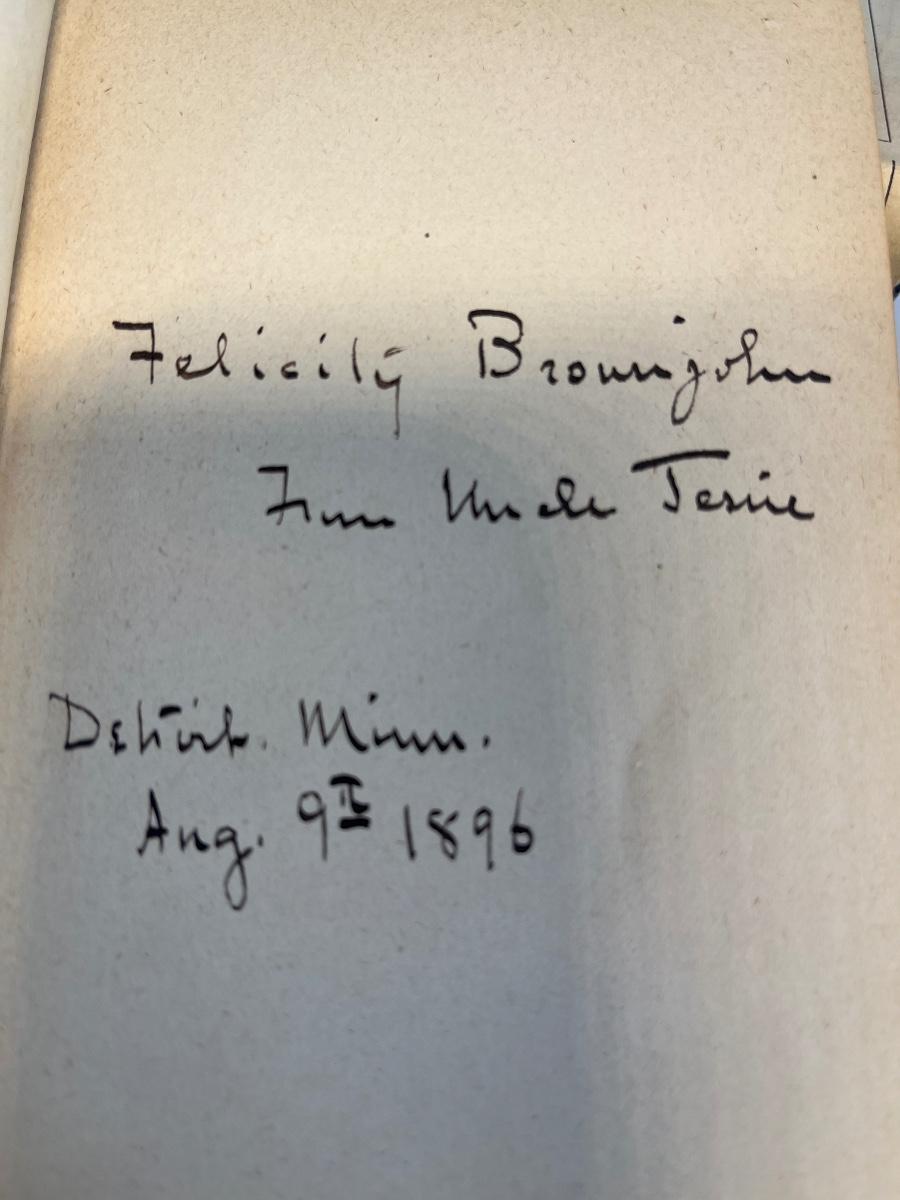 Felicity Brownjohn
From Uncle Jessie
Detroit. Minn.
Aug. 9th 1896